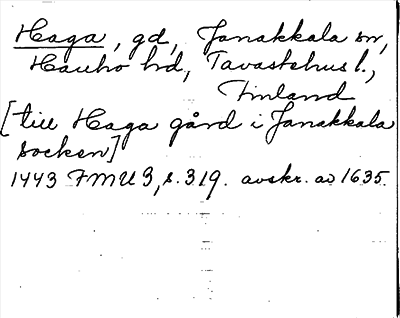 Haga, gd, Janakkala sn,
Hauho hd, Tavastehus l.,
Finland
[till Haga gård i Janakkala
socken]
1443 FMU 3, s. 319. avskr. av 1635.